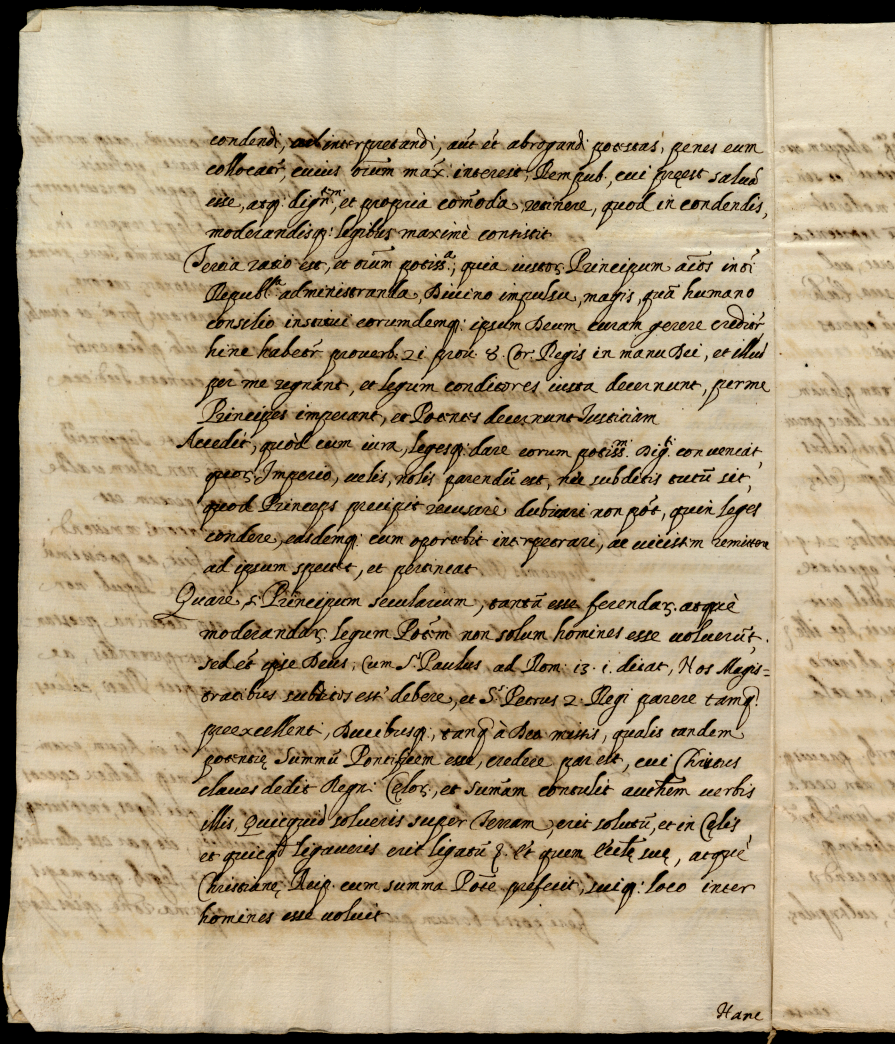 condendi, interpretandi, aut et abrogandi potestas, penes eum
collocatr, cuius oium max: interest, Rempub. cui preest salua
esse, atq: dignm, et propria comoda retinere, quod in condendis,
moderandisq: legibus maximè consistit
Tertia ratio est, et oium potissa, quia iustor Principum aios in
Republca administranda, Diuino impulsu, magis, quā humano
consilio institui eorumdemq: ipsum Deum curam gerere creditr,
hinc habetr proverb. 21 prou. 8. Cor Regis in manu Dei, et illud
per me regnant, et legum conditores iusta decernunt, per me
Principes imperant, et Potentes decernunt Iustitiam
Accedit, quòd cum iura, legesq: dare eorum potissm: Digti conueniat
quor Imperio, uelis, nolis parendū est, nec subditis tutū sit,
quod Princeps precipit recusare dubitari non pót, quin leges
condere, easdemq: cum oportebit interpetrari, ac uicissim remittere
ad ipsum spectet, et pertineat
Quare, si Principum secularium, tantā esse ferendar atquè
moderandar legum Potem non solum homines esse uoluerūt,
sed et ipse Deus, cum Sr Paulus ad Rom: 13. 1. dicat, Nos Magis=
tratibus subditos esse debere, et Sr Petrus 2. Regi parere tamq:
preexcellenti, Ducibusq:, tanq à Deo missis, qualis tandem
potentię Summū Pontificem esse, credere par est, cui Christus
claues dedit Regni Celor, et Sumam contulit authem uerbis
illis, Quicquid solueris super Terram, erit solutū, et in Celis
et quicqd ligaueris erit ligatū &. Et quem Ecclę suę, atquè
Christianę Reip. cum summa Pote prefecit, suiq: loco inter
homines esse uoluit
Hanc